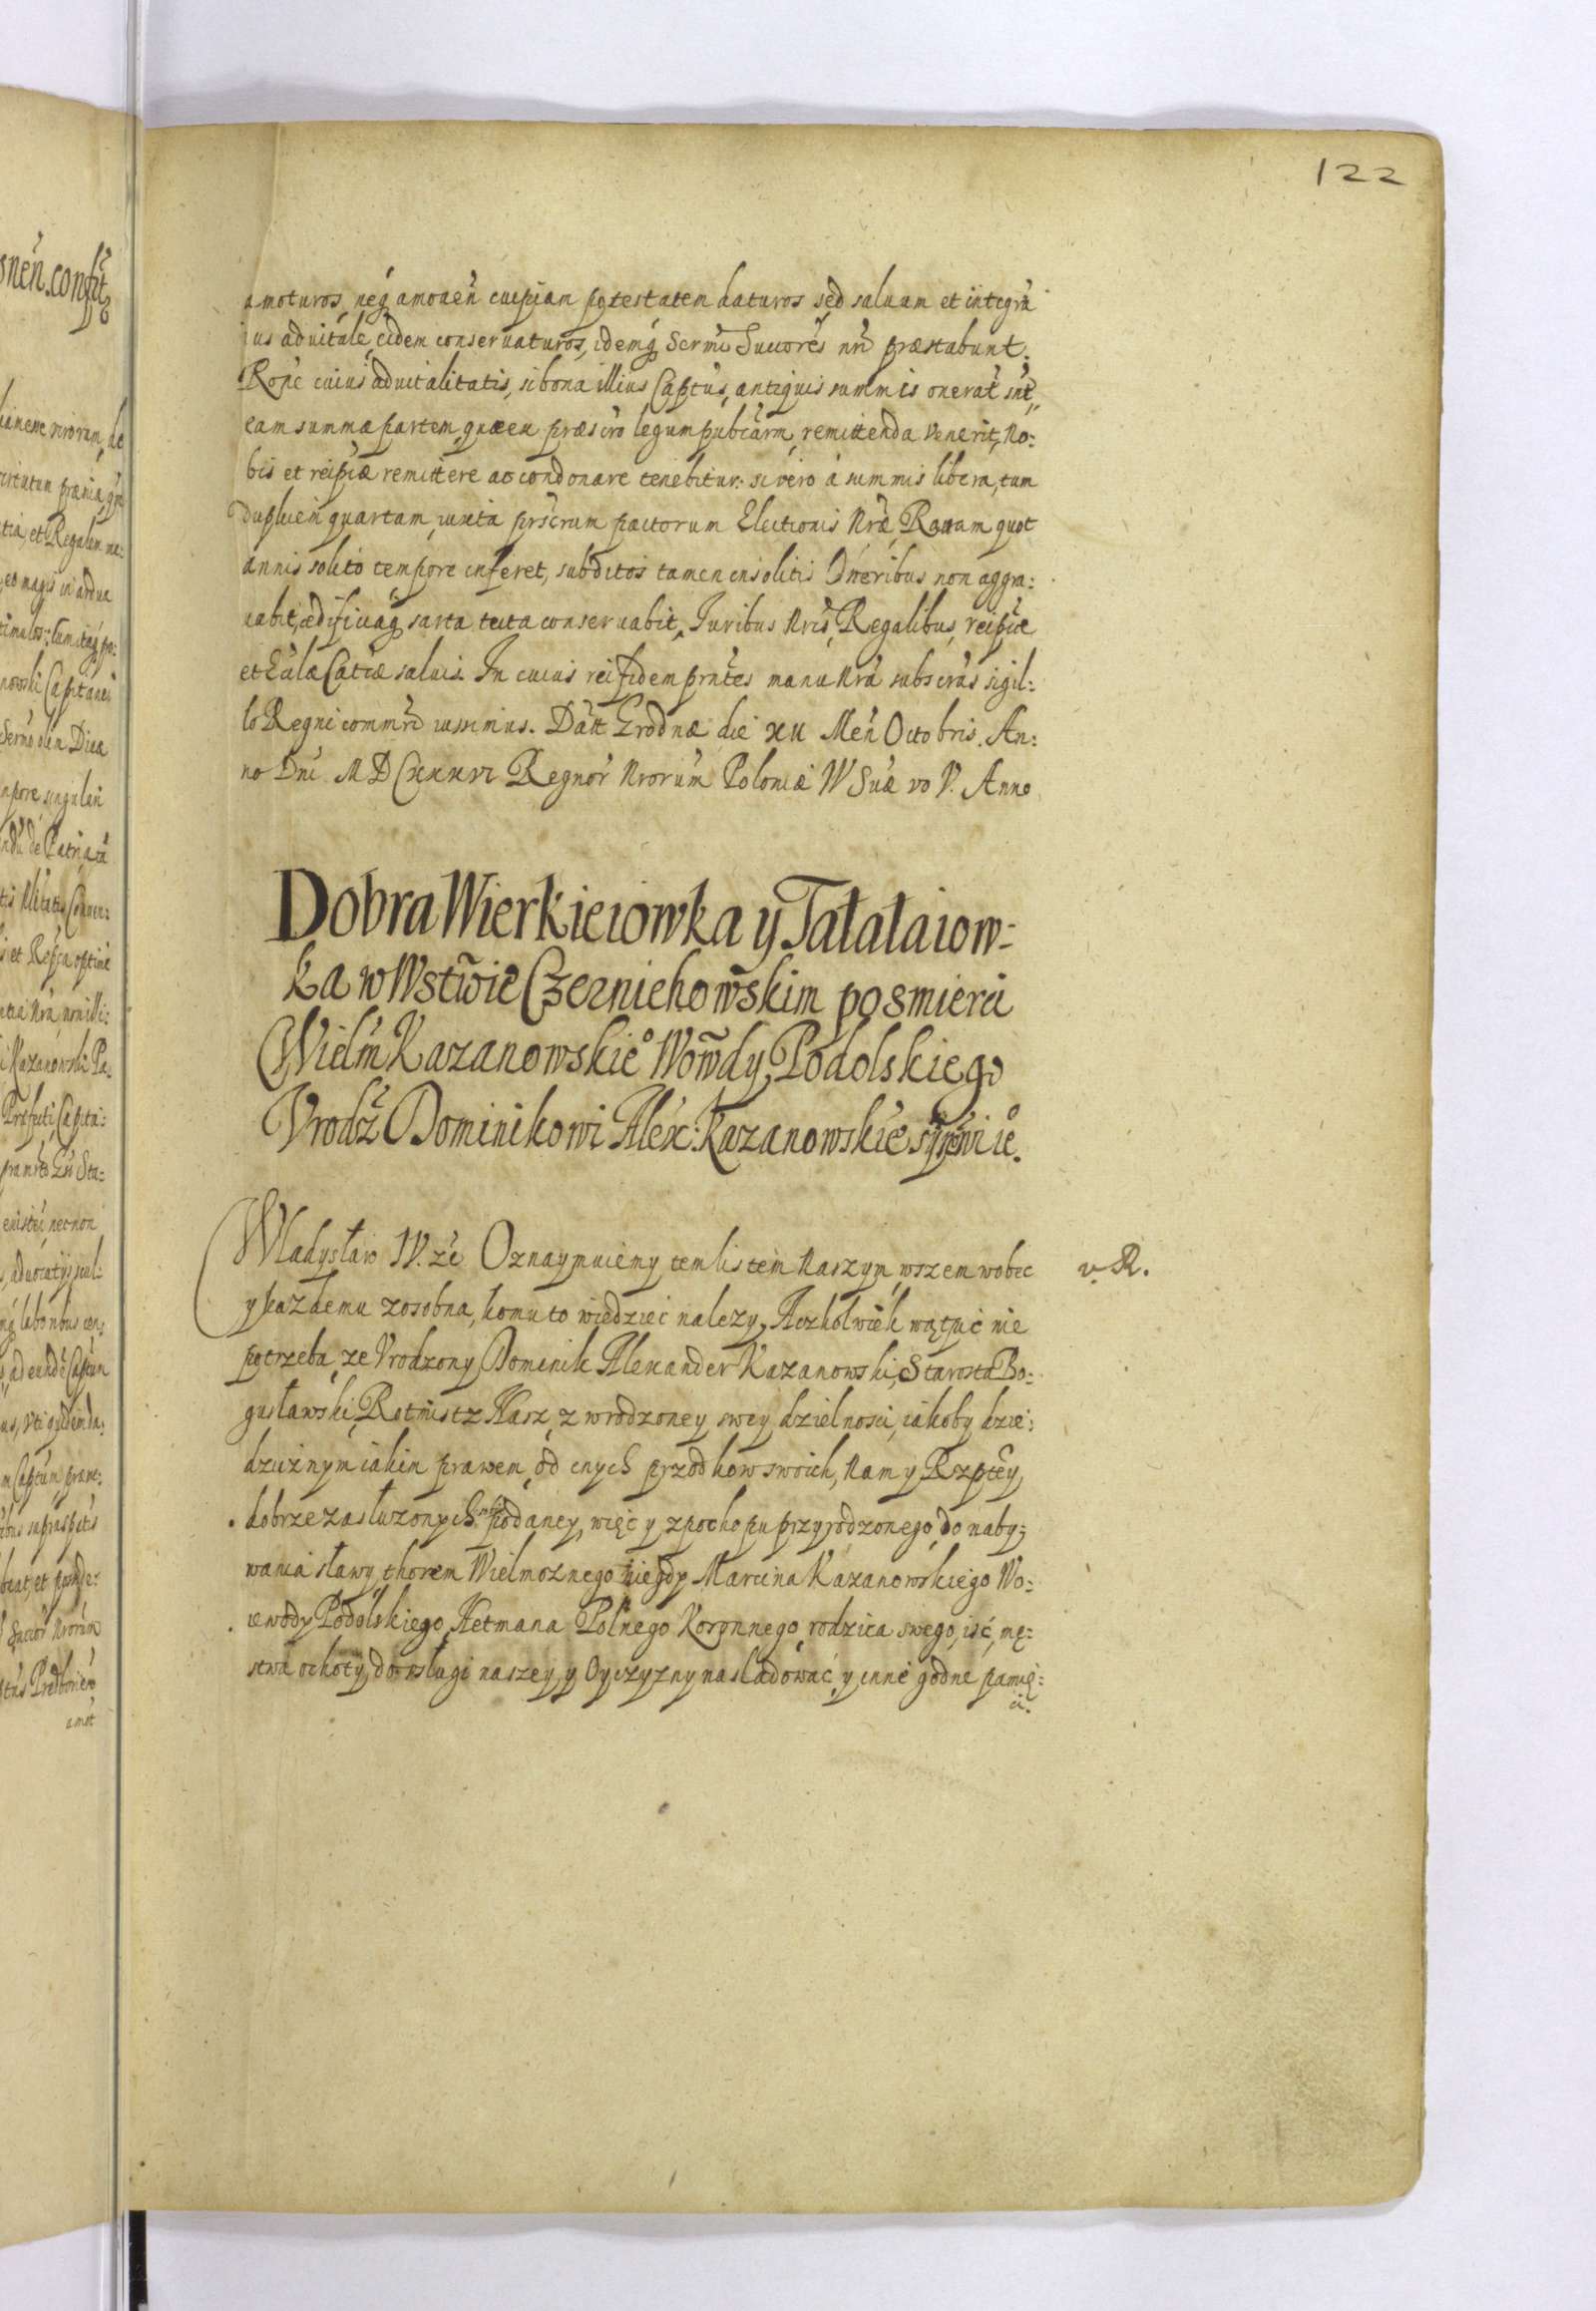 122
amoturos, neq́ amouen̄ cuipiam potestatem daturos sed saluam et integrā
ius aduitale eidem conseruaturos, idemq́ Sermī Succores̄ nrī præstabunt.
Ronē cuius aduitalitatis, si bona illius Captus, antiquis summis onerat̄ sint̄,
eam summæ partem, quæ ex præscro legum publcarm̄, remittenda venerit, No:
bis et reipcæ remittere ac condonare tenebitur: si vero á summis libera, tum
Duplicem quartam, iuxta prscrum pactorum Electionis Nræ, Rauam quot
annis solito tempore inferet, subditos tamen insolitis Oneribus non aggra:
uabit, ædificiaq́ sarta tecta conseruabit, Iuribus Nris, Regalibus, reipcæ
et Eccl̄æ Catcæ saluis. In cuius rei fidem prn̄tes manu Nrā subscrās sigil:
lo Regni commr̄i iussimus. Datt Grodnæ die XII Men̄ Octobris. An:
no Dnī MDCXXXVI Regnor̄ Nrorum Poloniæ IV Suæ vo V. Anno
Dobra Wierkieiowka y Tałałaiow:
ka w Wstwie Czerniehowskim po smierci
Wielm̄ Kazanowskieº Wowdy Podolskiego
Vrodz̄ Dominikowi Alex: Kazanowskieº synowi ieº.
Wladysław IV. zē Oznaymuiemy tem listem Naszym, wszem wobec
v. R.
y kazdemu zosobna, komu to wiedziec nalezy, Aczkolwiek wątpić nie
potrzeba, ze Vrodzony Dominik Alexander Kazanowski, Starosta Bo:
gusławski, Rotmistz Nasz, z wrodzoney swey dzielnosci, iakoby dzie:
dzicznym iakim prawem, od cnych przodkow swoich, Nam y Rzptey
dobrze zasłuzonych, podaney, więc y z pochopu przyrodzonego, do naby:
wania sławy, thorem Wielmoznego niegdy Marcina Kazanowskiego Wo:
iewody Podolskiego, Hetmana Polnego Koronnego, rodzica swego, iść, mę:
stwa ochoty, do usługi naszey, y Oyczyzny nasladować, y inne godne pamię:
ci.